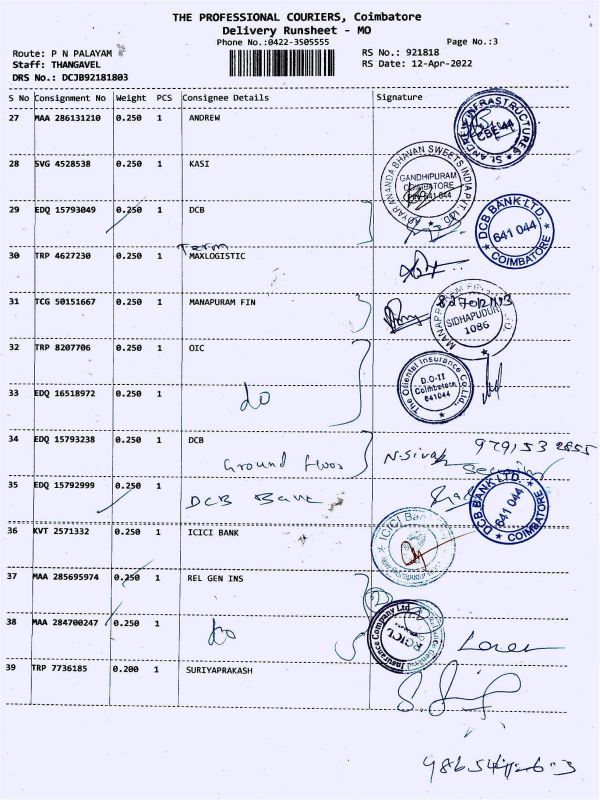 THE PROFESSIONAL COURIERS, Coimbatore
Delivery Runsheet - MO
Phone No.:0422-3505555
Page No.:3
Route: P N PALAYAM
RS No.: 921818
Staff: THANGAVEL
RS Date: 12-Apr-2022
DRS No.: DCJB92181803
S No Consignment No Weight PCS Consignee Details Signature
27 MAA 286131210 0.250 1 ANDREW
ST. ANDREW INFRASTRUCTURE
CBE-44
28 SVG 4528538 0.250 1 KASI
ADYAR ANANDA BHAVAN SWEETS INDIA PVT. LTD.
GANDHIPURAM
COIMBATORE
PIN 641 044
29 EDQ 15793049 0.250 1 DCB
DCB BANK LTD.
641 044
COIMBATORE
Term
30 TRP 4627230 0.250 1 MAXLOGISTIC
31 TCG 50151667 0.250 1 MANAPURAM FIN
SIDHAPUDUR
1086
32 TRP 8207706 0.250 1 OIC
The Oriental Insurance Co.Ltd.,
D.O-II
Coimbatore,
641044
33 EDQ 16518972 0.250 1
do
34 EDQ 15793238 0.250 1 DCB
Ground floor
N.Siva
9791532855
Security
35 EDQ 15792999 0.250 1
DCB Bank
DCB BANK LTD.
641 044
COIMBATORE
36 KVT 2571332 0.250 1 ICICI BANK
ICICI Bank
37 MAA 285695974 0.250 1 REL GEN INS
38 MAA 284700247 0.250 1
do
General Insurance Company Ltd
RGICL
39 TRP 7736185 0.200 1 SURIYAPRAKASH